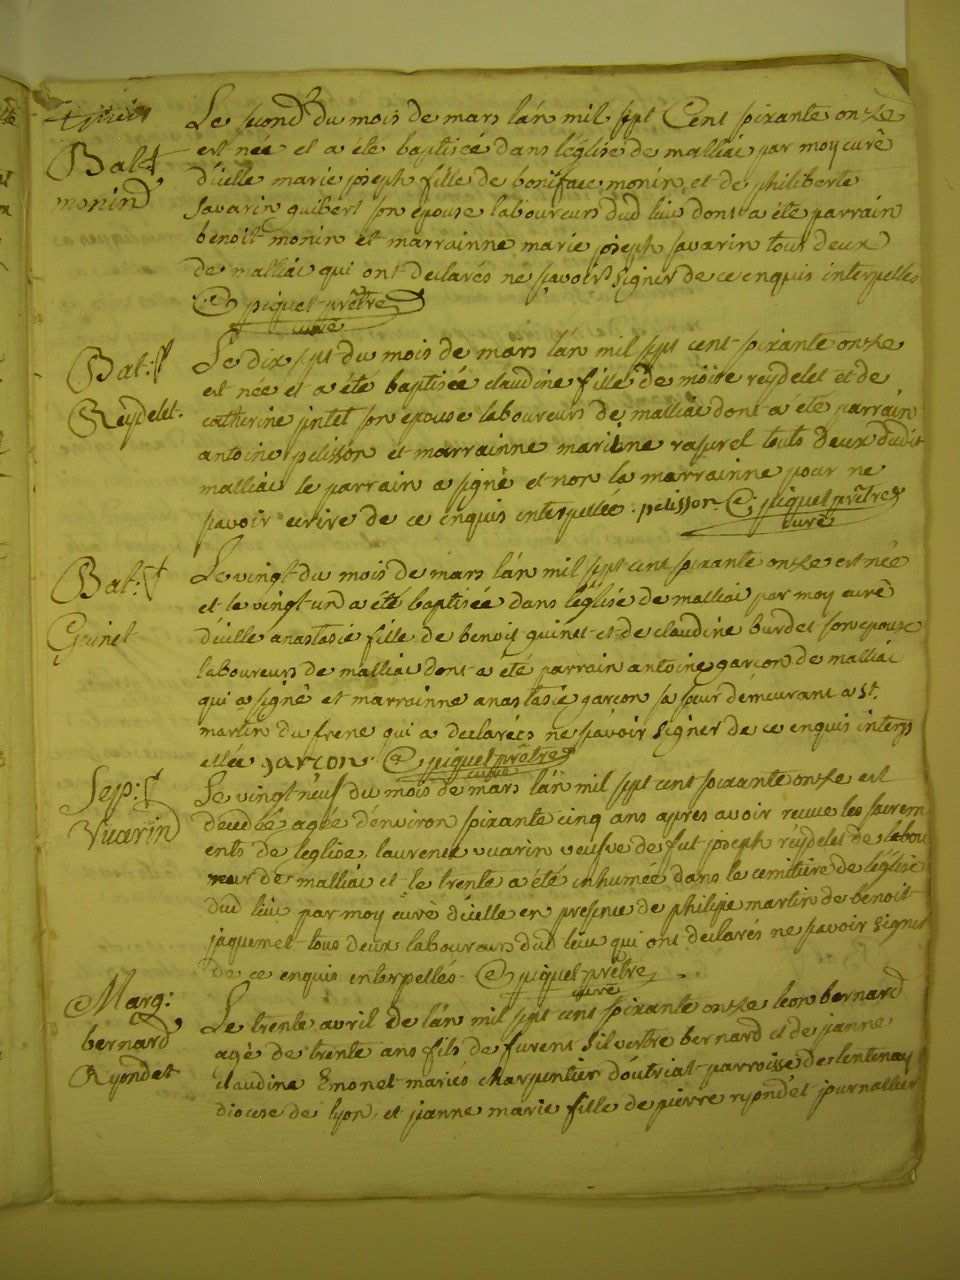 Bat:
monin
Le second du mois de mars l'an mil sept Cent soixante onze
est née et a été baptisée dans l'église de malliac par moy curé
d'icelle marie joseph fille de boniface monin et de philiberte
savarin guibert son epouse laboureurs dud lieu dont a été parrain
benoit monin et marrainne marie joseph savarin tous deux
de malliac qui ont declarés ne savoir signer de ce enquis interpelles
piquet prêtre
curé
Bat:
Reydelet.
Le dix sept du mois de mars l'an mil sept cent soixante onze
est née et a été baptisée claudine fille de moise reydelet et de
catherine son epouse laboureurs de malliac dont a été parrain
antoine pelisson et marrainne marianne rasurel touts deux dudit
malliac le parrain a signé et non la marrainne pour ne
savoir ecrire de ce enquis interpellée. pelisson piquet prêtre
curé
Bat:
Guinet
Le vingt du mois de mars l'an mil sept cent soixante onze est née
et le vingt un a été baptisée dans l'église de malliac par moy curé
d'icelle anastasie fille de benoit guinet et de claudine burdet son epouse
laboureurs de malliac dont a été parrain antoine garçon de malliac
qui a signé et marrainne anastasie garçon sa sœur demeurant a St.
martin du frene qui a declarés ne savoir signer de ce enquis interp
ellée garçon. piquet prêtre
curé
Sep:
Vuarin
Le vingt neuf du mois de mars l'an mil sept cent soixante onze est
decedée agée d'environ soixante cinq ans apres avoir recue les sacrem
ents de leglise, laurence vuarin veufve de fut joseph reydelet de labou
reur de malliac et le trente a été inhumée dans le cemitiere de léglise
dud lieu par moy curé d'icelle en presence de philipe martin de benoit
jaquemet tous deux laboureurs dud lieu qui ont declarés ne savoir signer
de ce enquis interpellés. piquet prêtre
curé
Marg:
bernard
Ryondet
Le trente avril de l'an mil sept cent soixante onze leon bernard
agé de trente ans fils de furent silvestre bernard et de janne
claudine Emonet mariés charpentier d'outriat parroisse de lentenay
diocese de lyon, et janne marie fille de pierre ryondet journallier